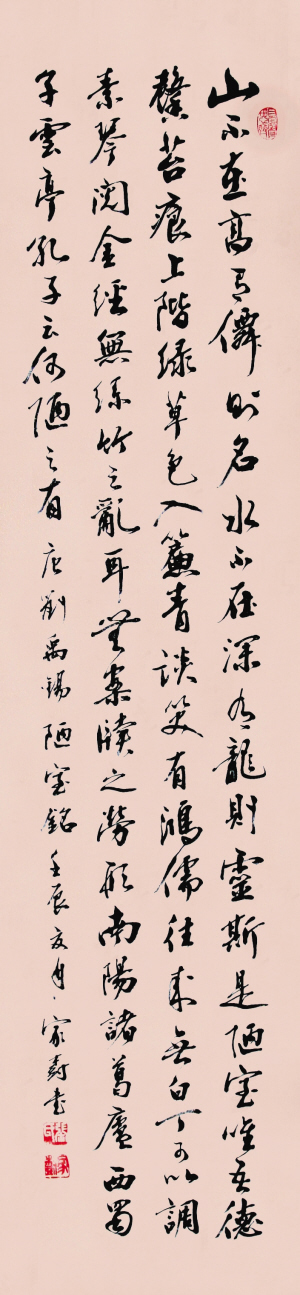 山不在高有僊則名水不在深有龍則靈斯是陋室唯吾德
馨苔痕上階緑草色入簾青談笑有鴻儒往來無白丁可以調
素琴閱金經無絲竹之亂耳無案牘之勞形南陽諸葛廬西蜀
子雲亭孔子云何陋之有 唐劉禹錫陋室銘 壬辰夏月家寿書